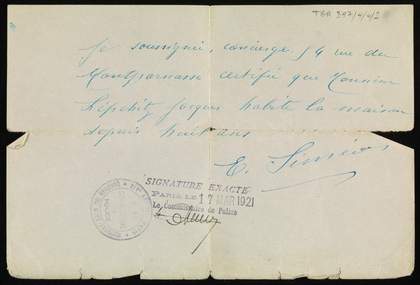 TGA 897/4/4/2
Je soussigné, concierge 54 rue du
Montparnasse certifie que Monsieur
Lipchitz Jacques habite la maison
depuis huit ans
E. Simier
SIGNATURE EXACTE
PARIS, LE 17 MAR 1921
Le Commissaire de Police